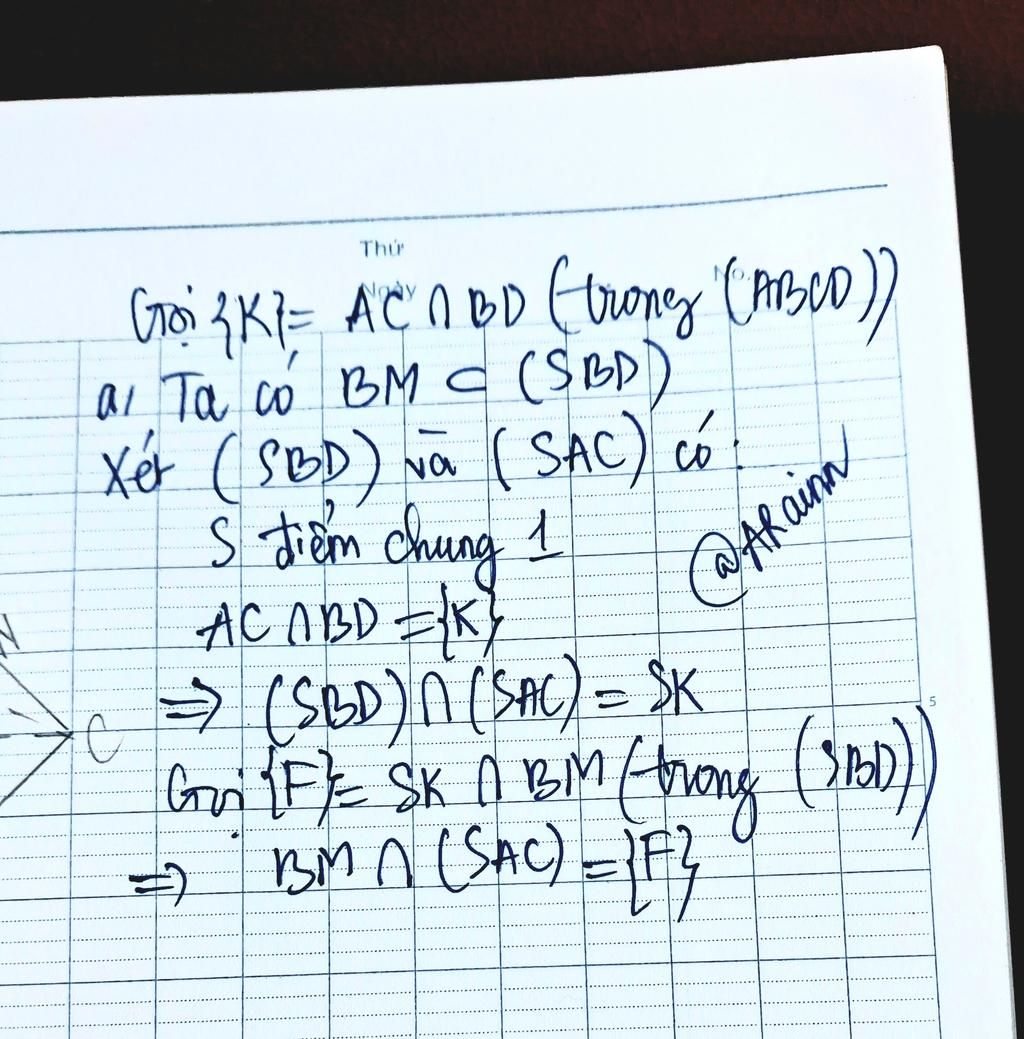 Thứ
Ngày
No.
Gọi {K}= AC ∩ BD (trong (ABCD))
a, Ta có BM ⊂ (SBD)
Xét (SBD) và (SAC) có:
S điểm chung 1
@ARainn
AC ∩ BD = {K}
N
⇒ (SBD) ∩ (SAC) = SK
5
C
Gọi {F}= SK ∩ BM (trong (SBD))
⇒ BM ∩ (SAC) = {F}